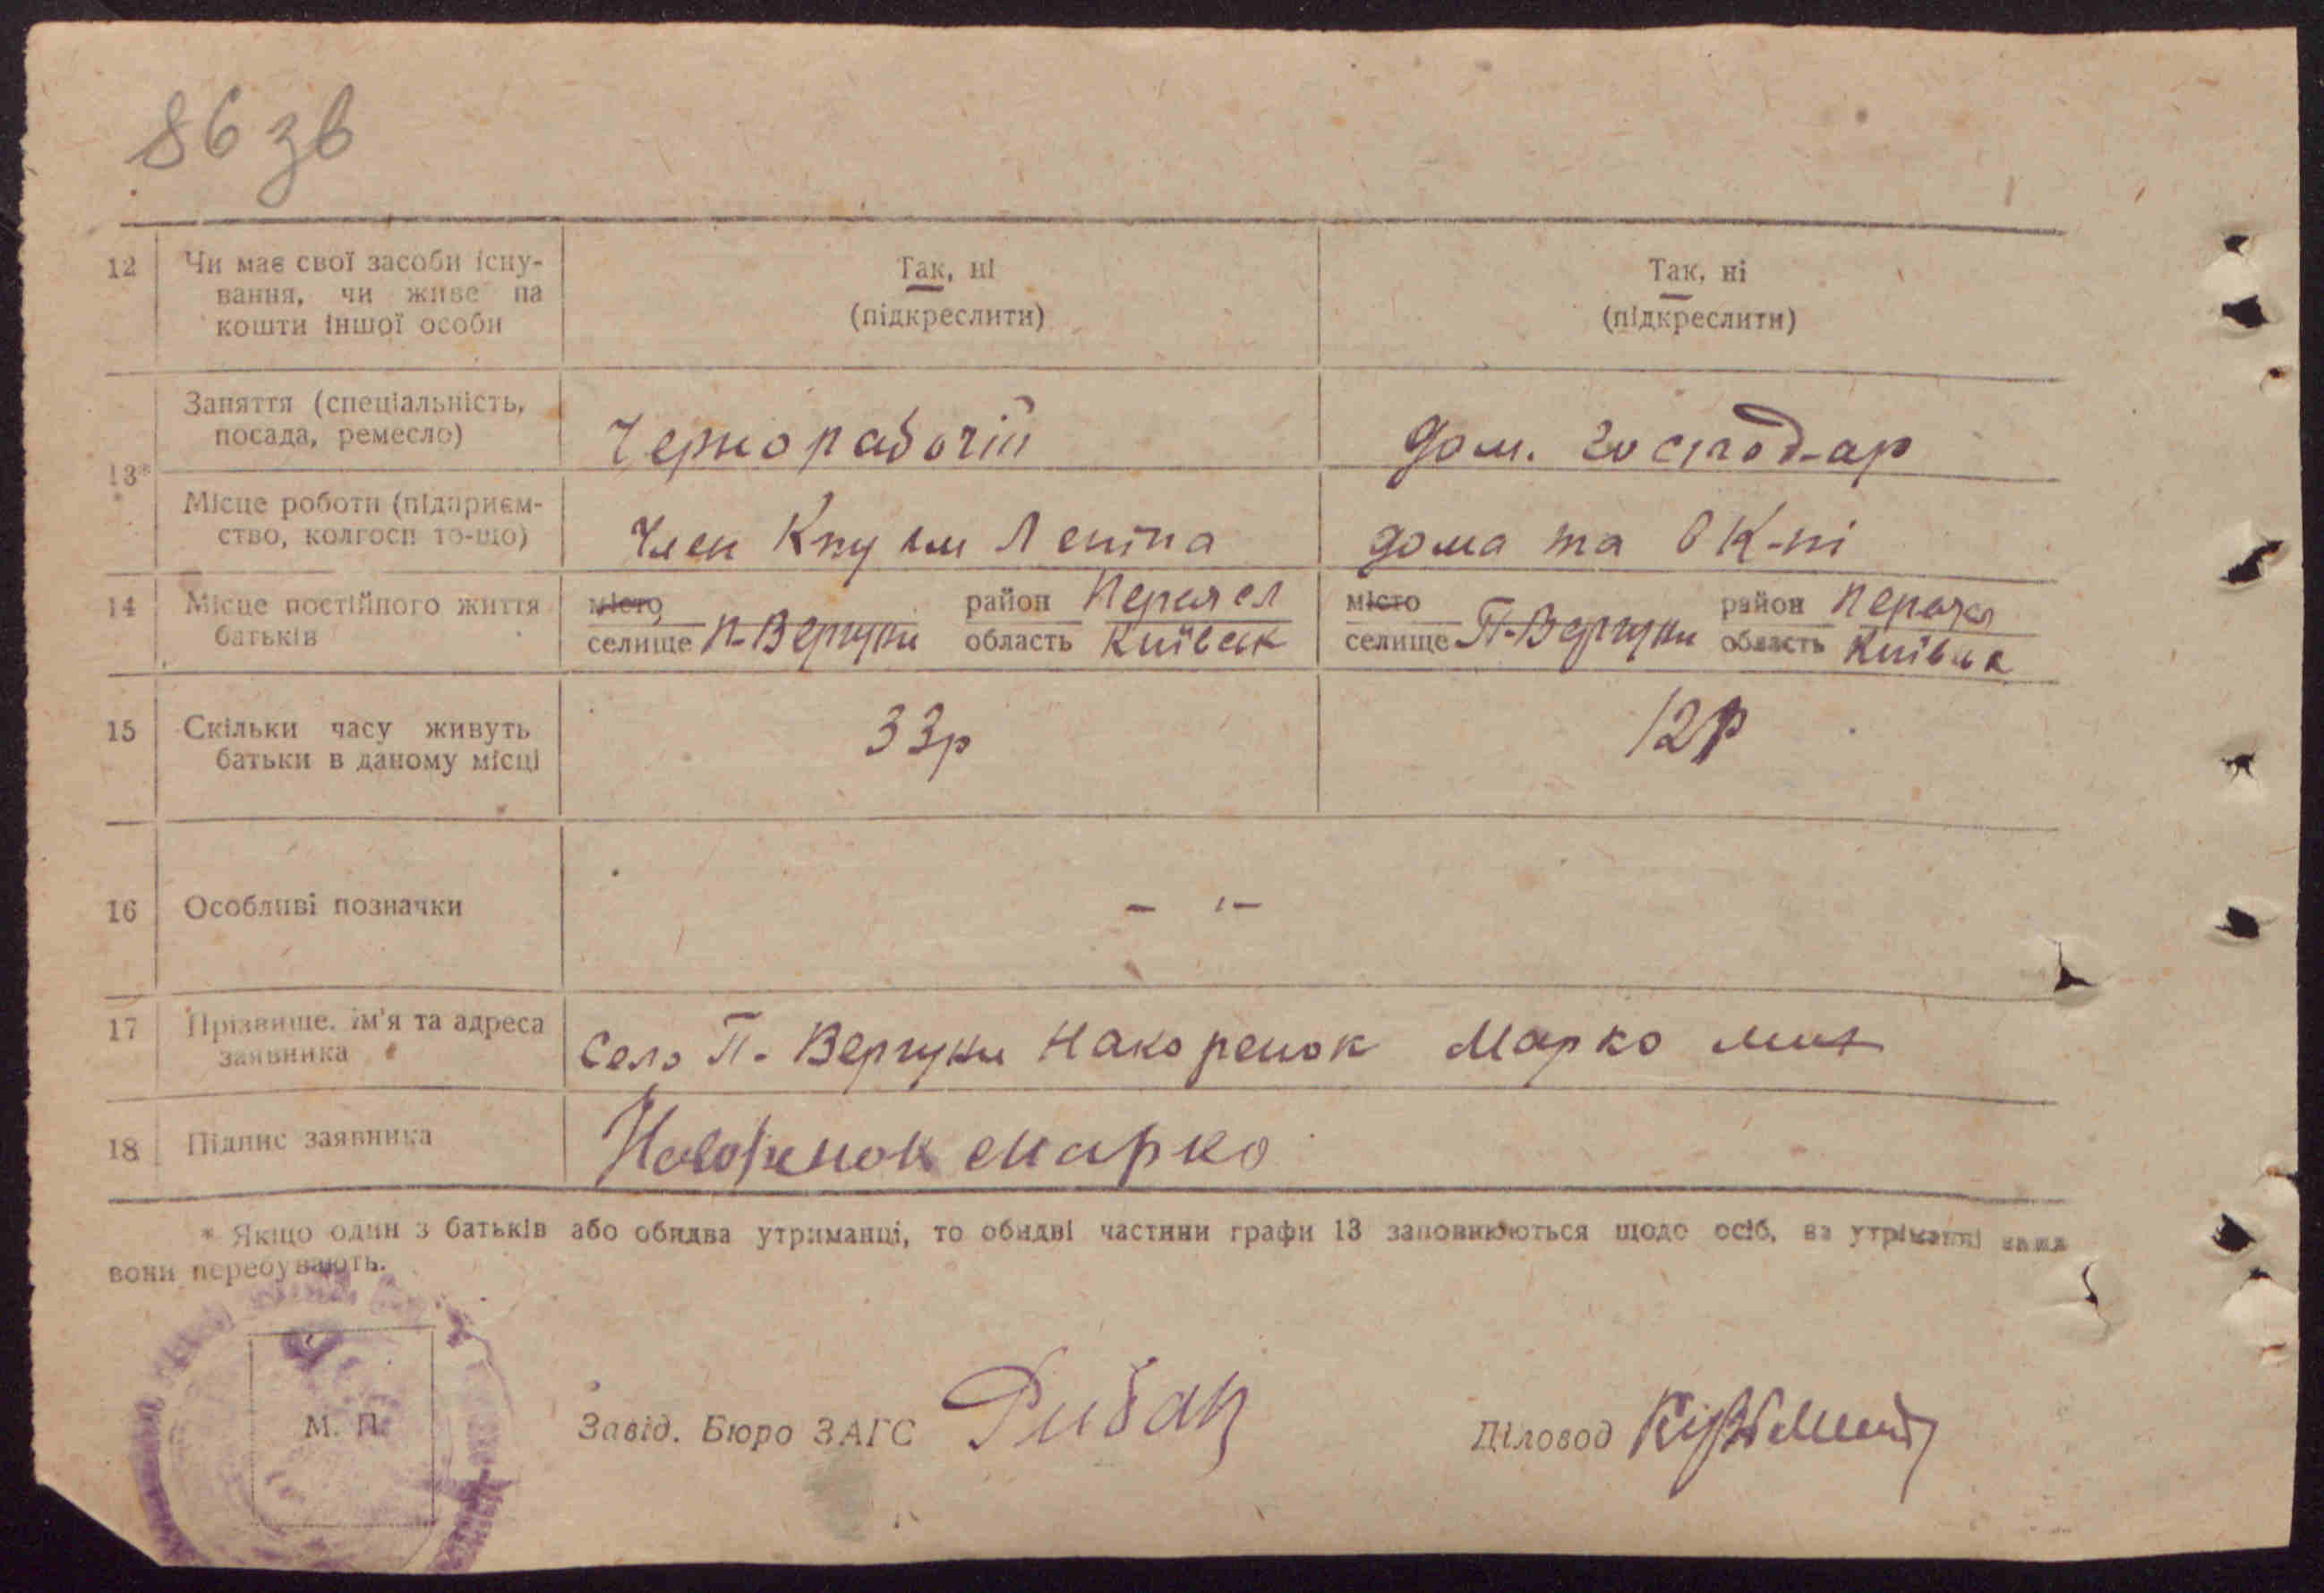 86 зв
12 Чи має свої засоби існу-
вання, чи живе на
кошти іншої особи
Так, ні
(підкреслити)
Так, ні
(підкреслити)
13*
Заняття (спеціальність,
посада, ремесло)
Чернорабочій
дом. господ-ар
Місце роботи (підприєм-
ство, колгосп то-що)
Член Леніна
дома та
14 Місце постійного життя
батьків
місто
селище П-Вергуни
район Переясл
область Київськ
місто
селище П-Вергуни
район Переяс
область Київськ
15 Скільки часу живуть
батьки в даному місці
33р
12р
16 Особливі позначки
17 Прізвище, ім'я та адреса
заявника
село П-Вергуни Накоренок Марко
18 Підпис заявника
Марко
* Якщо один з батьків або обидва утриманці, то обидві частини графи 13 заповнюються щодо осіб, на утриманні
вони перебувають.
М. П.
Завід. Бюро ЗАГС Рибак
Діловод